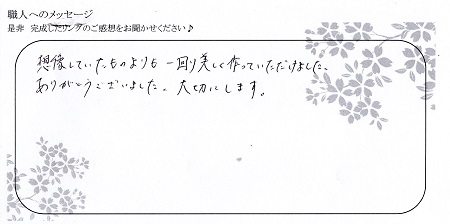 職人へのメッセージ
是非 完成したリングのご感想をお聞かせください♪
想像していたものよりも一回り美しく作っていただけました。
ありがとうございました。大切にします。